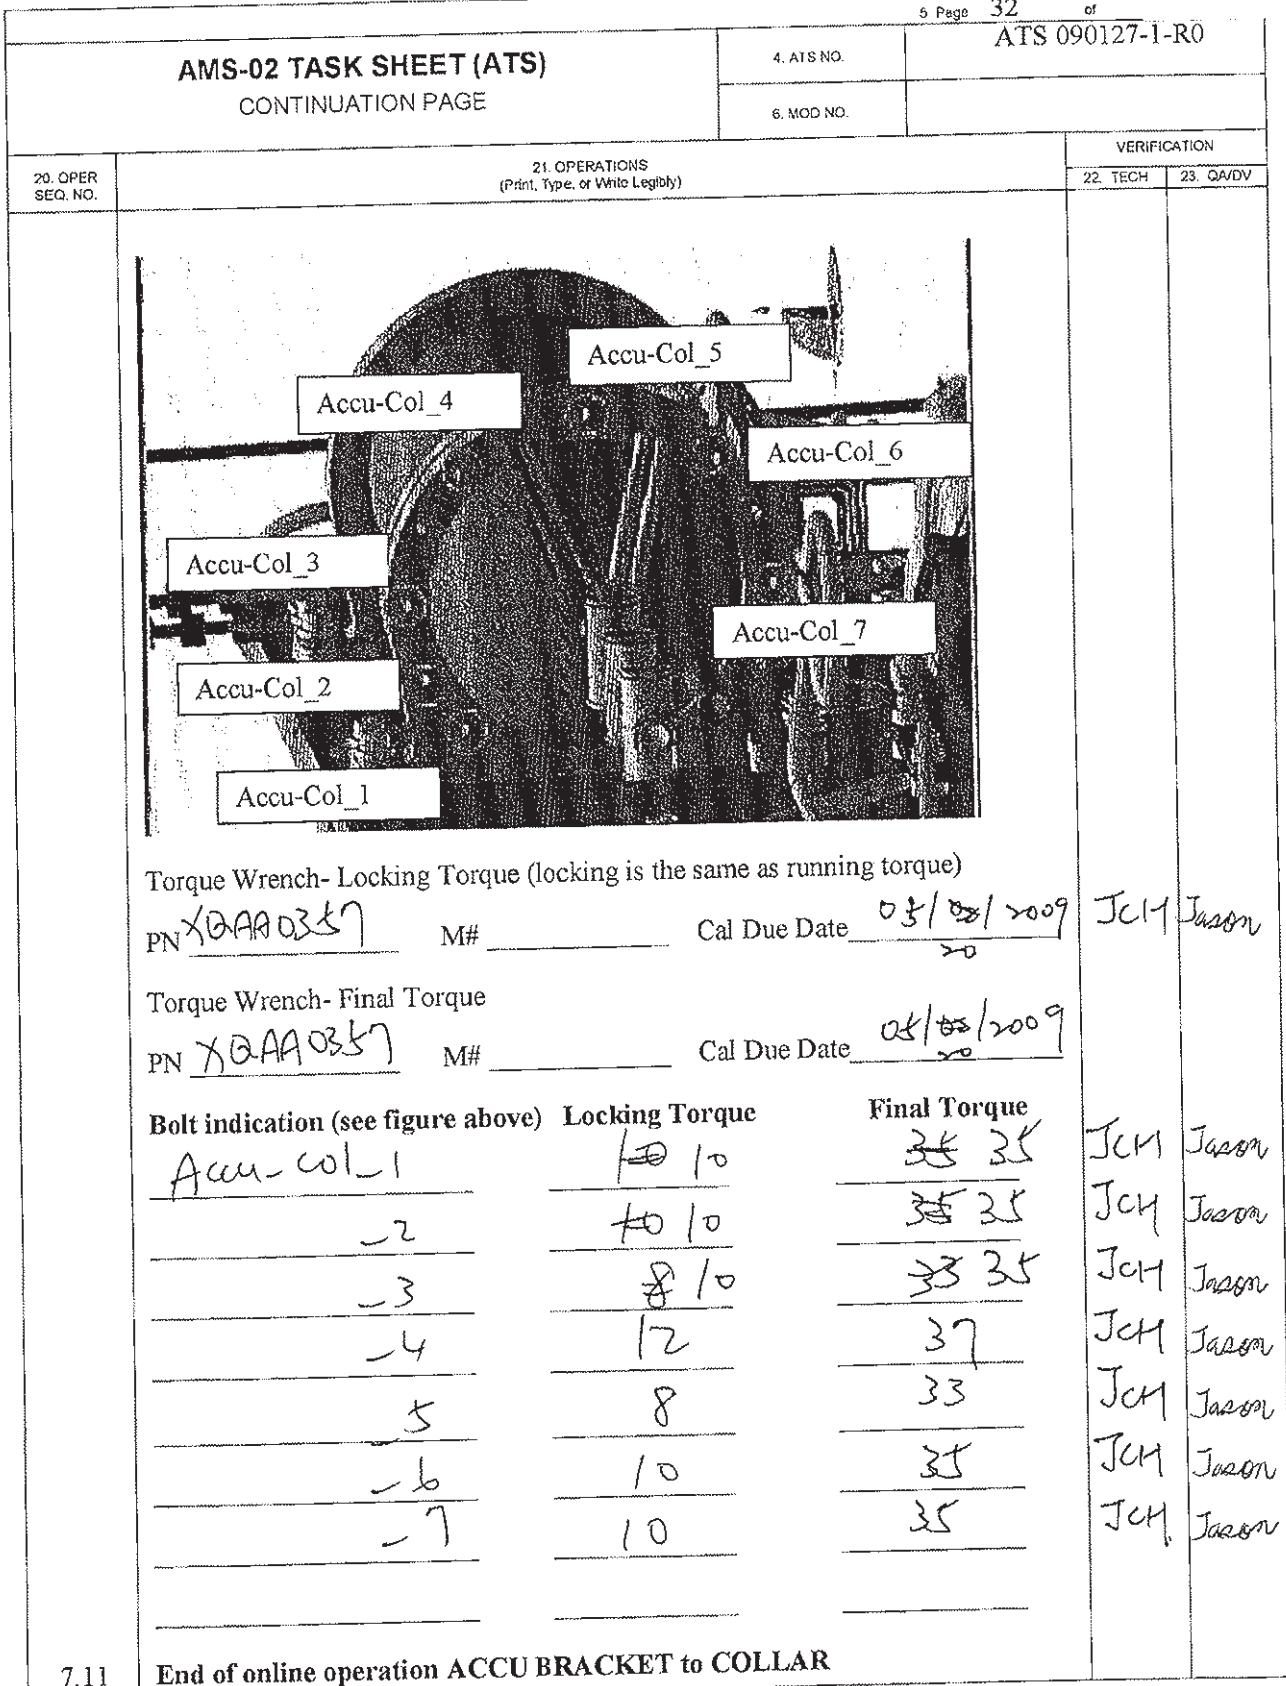 5 Page 32 of
AMS-02 TASK SHEET (ATS)
CONTINUATION PAGE
4. ATS NO.
ATS 090127-1-R0
6. MOD NO.
20. OPER SEQ. NO.
21. OPERATIONS
(Print, Type, or Write Legibly)
VERIFICATION
22. TECH
23. QA/DV
Accu-Col_5
Accu-Col_4
Accu-Col_6
Accu-Col_3
Accu-Col_7
Accu-Col_2
Accu-Col_1
Torque Wrench- Locking Torque (locking is the same as running torque)
PN XQAA0357 M# Cal Due Date 05/20/2009 JCH Jason
Torque Wrench- Final Torque
PN XQAA0357 M# Cal Due Date 05/20/2009
Bolt indication (see figure above) Locking Torque Final Torque
Accu-Col_1 10 10 35 35 JCH Jason
_2 10 10 35 35 JCH Jason
_3 8 10 33 35 JCH Jason
_4 12 37 JCH Jason
_5 8 33 JCH Jason
_6 10 35 JCH Jason
_7 10 35 JCH Jason
7.11 End of online operation ACCU BRACKET to COLLAR